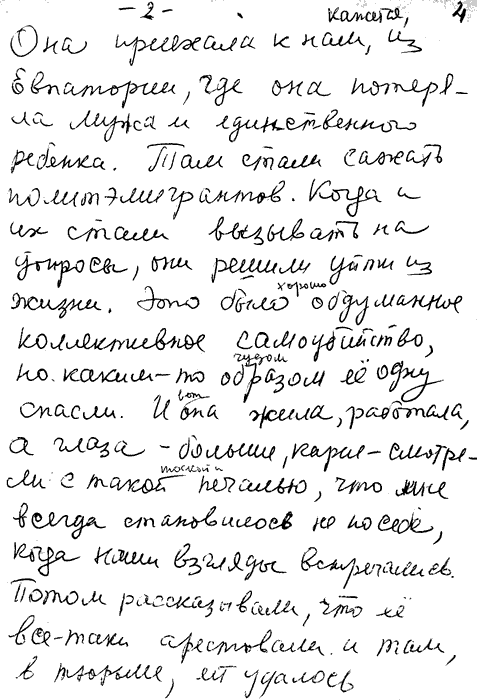 - 2 - 4
кажется,
Она приехала к нам, из
Евпатории, где она потеря-
ла мужа и единственного
ребенка. Там стали сажать
политэмигрантов. Когда и
их стали вызывать на
допросы, они решили уйти из
хорошо
жизни. Это было обдуманное
коллективное самоубийство,
чудом
но каким-то образом её одну
вот
спасли. И она жила, работала,
а глаза - большие, карие - смотре-
тоской и
ли с такой печалью, что мне
всегда становилось не по себе,
когда наши взгляды встречались.
Потом рассказывали, что её
все-таки арестовали и там,
в тюрьме, ей удалось